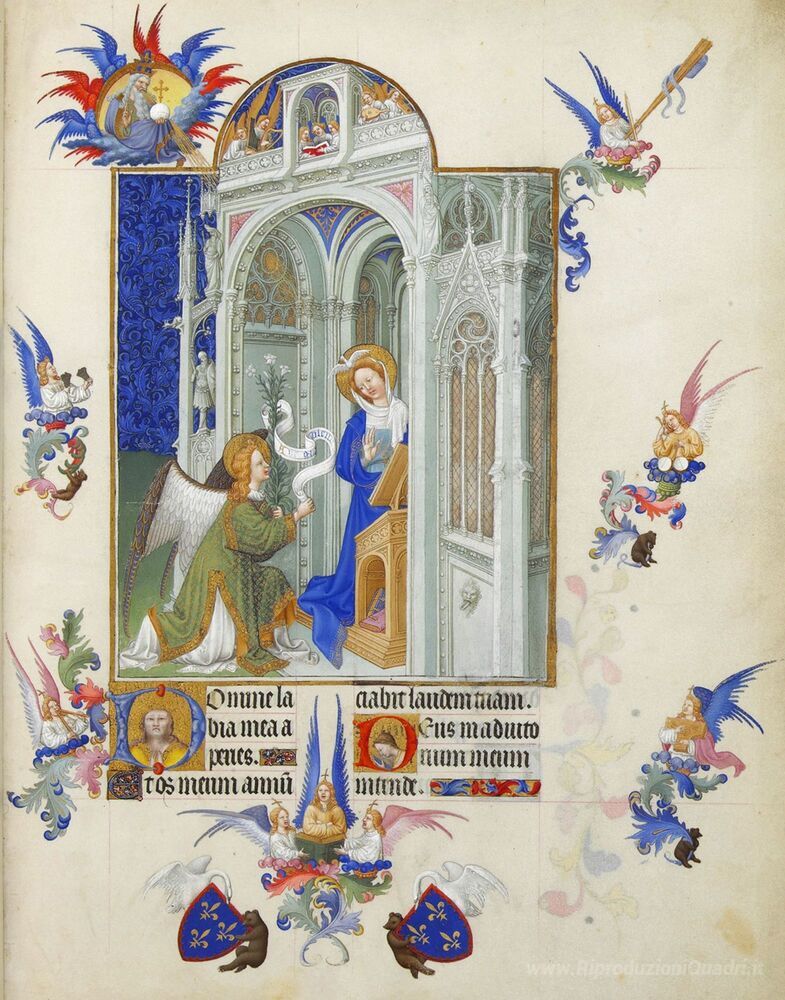 Domine la
bia mea a
peries.
Et os meum annū
ciabit laudem tuam.
Deus in adiuto
rium meum
intende.
www.RiproduzioniQuadri.it